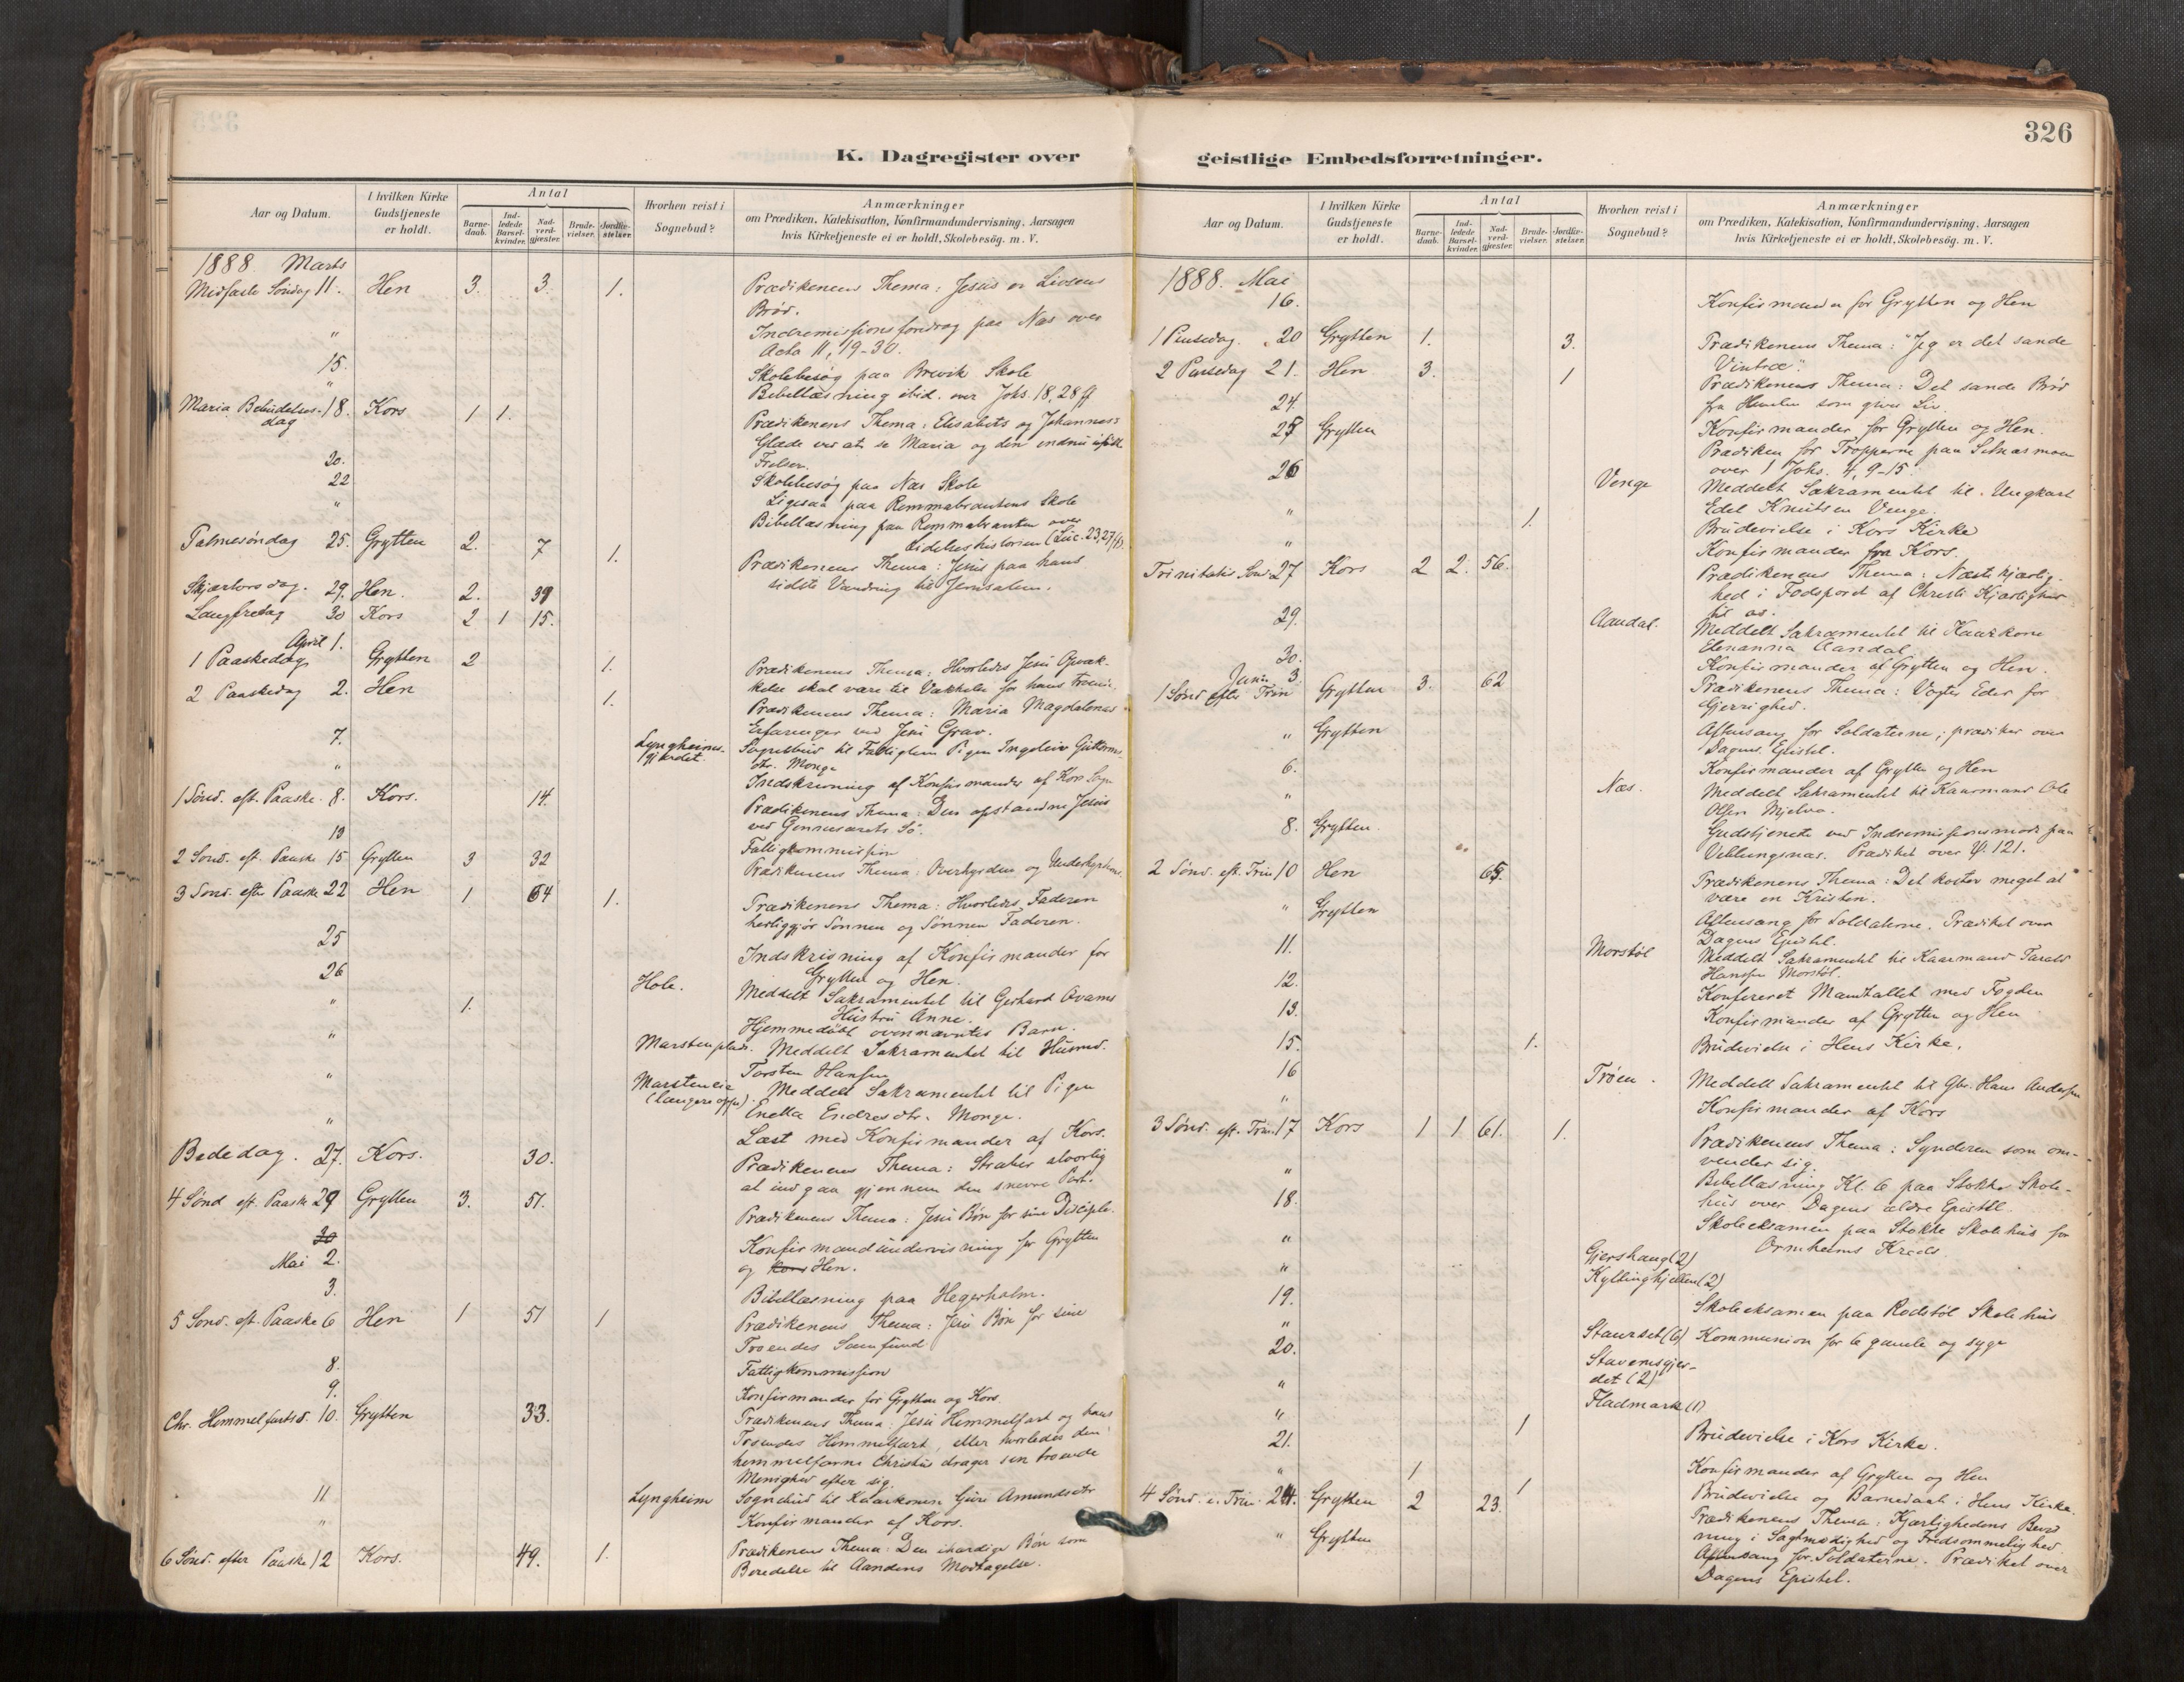 326
K. Dagregister over geistlige Embedsforretninger.
Aar og Datum.
I hvilken Kirke Gudstjeneste er holdt.
Antal
Barnedaab.
Indledede Barselkvinder.
Nadverdgjester.
Brudevielser.
Jordfæstelser.
Hvorhen reist i Sognebud?
Anmærkninger
om Prædiken, Katekisation, Konfirmandundervisning, Aarsagen
hvis Kirketjeneste ei er holdt, Skolebesög. m. V.
1888. Marts
Midfaste Söndag 11. Hen 3. 3. 1. Prædikenens Thema: Jesus er Livsens
Bröd.
" Indremissionsforedrag paa Næs over
Acta 11, 19-30.
15. Skolebesög paa Brevik Skole
" Bibellæsning ibid. over Johs. 18, 28 ff
Maria Bebudelses- 18. Kors 1 1. Prædikenens Thema: Elisabets og Johannes's
dag
Glæde ved at se Maria og den endnu ufödte
Frelser.
20. Skolebesög paa Næs Skole
22 Ligesaa paa Remmabrautens Skole
" Bibellæsning paa Remmabrauten over
Lidelseshistorien (Luc. 23, 27 ff).
Palmesöndag 25. Grytten 2. 7 1. Prædikenens Thema: Jesus paa hans
sidste Vandring til Jerusalem.
Skjærtorsdag. 29. Hen. 2. 39
Langfredag 30 Kors 2 1 15.
April 1.
1 Paaskedag Grytten 2 1. Prædikenens Thema: Hvorledes Jesu Opvæk-
kelse skal være til Vækkelse for hans Troende.
2 Paaskedag 2. Hen 1. Prædikenens Thema: Maria Magdalenas
Erfaringer ved Jesu Grav.
7. Lyngheims- Sognebud til Fattiglem Pigen Ingeleiv Guttorms
gjerdet. dtr. Monge
" Indskrivning af Konfirmander af Kors Sogn
1 Sönd. eft. Paaske. 8. Kors. 14. Prædikenens Thema: Den opstandne Jesus
ved Gennesarets Sö.
13 Fattigkommission
2 Sönd. eft. Paaske 15 Grytten 3 32 Prædikenens Thema: Overhyrden og Underhyrderne.
3 Sönd. efter Paaske 22 Hen 1 64 1. Prædikenens Thema: Hvorledes Faderen
herliggjör Sönnen og Sönnen Faderen.
25 Indskrivning af Konfirmander for
Grytten og Hen.
26 Hole. Meddelt Sakramentet til Gerhard Avams
Hustru Anne.
" 1. Hjemmedöbt ovennævntes Barn.
" Marstenplads. Meddelt Sakramentet til Husmd.
Torsten Hansen
" Marsteneie Meddelt Sakramentet til Pigen
(længere oppe). Enella Endresdtr. Monge.
" Læst med Konfirmander af Kors.
Bededag. 27. Kors. 30. Prædikenens Thema: Stræber alvorlig
at indgaa gjennem den snevre Port.
4 Sönd eft. Paaske 29 Grytten 3. 51. Prædikenens Thema: Jesu Bön for sine Disciple.
30
Mai 2. Konfirmandundervisning for Grytten
og Kors Hen.
3. Bibellæsning paa Hegerholm.
5 Sönd. eft. Paaske 6 Hen 1 51 1 Prædikenens Thema: Jesu Bön for sine
Troendes Samfund
8. Fattigkommission
9. Konfirmander for Grytten og Kors.
Chr. Himmelfartsd. 10. Grytten 33. Prædikenens Thema: Jesu Himmelfart og hans
Troendes Himmelfart, eller hvorledes den
himmelfarne Christus drager sin troende
Menighed efter sig.
11 Lyngheim Sognebud til Kaarkonen Guri Amundsdtr
" Konfirmander af Kors.
6 Sönd. efter Paaske 12 Kors. 49. 1. Prædikenens Thema: Den ihærdige Bön som
Beredelse til Aandens Modtagelse.
Aar og Datum.
I hvilken Kirke Gudstjeneste er holdt.
Antal
Barnedaab.
Indledede Barselkvinder.
Nadverdgjester.
Brudevielser.
Jordfæstelser.
Hvorhen reist i Sognebud?
Anmærkninger
om Prædiken, Katekisation, Konfirmandundervisning, Aarsagen
hvis Kirketjeneste ei er holdt, Skolebesög. m. V.
1888. Mai
16. Konfirmander for Grytten og Hen
1 Pinsedag. 20 Grytten 1. 3. Prædikenens Thema: "Jeg er det sande
Vintræ".
2 Pinsedag 21. Hen 3. 1 Prædikenens Thema: Det sande Bröd
fra Himlen som giver Liv.
24. Konfirmander for Grytten og Hen.
25 Grytten Prædiken for Tropperne paa Setnesmoen
over 1 Johs. 4, 9-15.
26 Venge Meddelt Sakramentet til Ungkarl
Edel Knutsen Venge.
" 1. Brudevielse i Kors Kirke
" Konfirmander fra Kors.
Trinitatis Sönd. 27 Kors 2 2. 56. Prædikenens Thema: Næstekjærlig-
hed i Fodsporet af Christi Kjærlighed
til os.
29. Aandal. Meddelt Sakramentet til Kaarkone
Elenanna Aandal
30. Konfirmander af Grytten og Hen.
Juni 3.
1 Sönd efter Trin Grytten 3. 62 Prædikenens Thema: Vogter Eder for
Gjerrighed.
" Grytten Aftensang for Soldaterne; prædiker over
Dagens Epistel.
6. Konfirmander af Grytten og Hen
" Næs. Meddelt Sakramentet til Kaarmand Ole
Olsen Mjelva.
8. Grytten. Gudstjeneste ved Indremissionsmöde paa
Veblungsnæs. Prædiket over Ψ. 121.
2 Sönd. eft. Trin 10 Hen 65. Prædikenens Thema: Det koster meget at
være en Kristen.
" Grytten Aftensang for Soldaterne. Prædiket over
Dagens Epistel.
11. Morstöl Meddelt Sakramentet til Kaarmand Tarald
Hansen Morstöl.
12. Konfereret Mandtallet med Fogden
13. Konfirmander af Grytten og Hen
15. 1. Brudevielse i Hens Kirke.
16 Tröen. Meddelt Sakramentet til Gbr. Hans Andersen
" Konfirmander af Kors
3 Sönd. eft. Trin. 17 Kors 1 1 61. 1. Prædikenens Thema: Synderen som om-
vender sig.
" Bibellæsning Kl. 6 paa Stokke Skole-
hus over Dagens ældre Epistel.
18. Skoleeksamen paa Stokke Skolehus for
Ormheims Kreds.
" Gjershaug (2)
" Kyllinghjellen (2)
19. Skoleeksamen paa Rödstöl Skolehus
" Staurset (6) Kommunion for 6 gamle og syge
20. Stavemsgjer-
det (2)
" Fladmark (1)
" 1 Brudevielse i Kors Kirke.
21. Konfirmander af Grytten og Hen
" 1 1 Brudevielse og Barnedaab i Hens Kirke.
4 Sönd. e. Trin. 24. Grytten 2 23. Prædikenens Thema: Kjærlighedens Bevis
ning i Sagtmodighed og Fredsommelighed.
" Grytten Aftensang for Soldaterne. Prædiket over
Dagens Epistel.